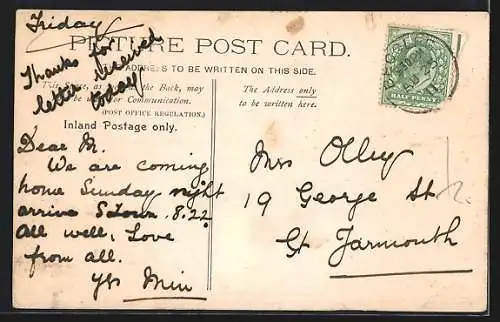 Friday
Thanks for
letter received
today
PICTURE POST CARD.
ADDRESS TO BE WRITTEN ON THIS SIDE.
This Space, as at the Back, may
be used for Communication.
(POST OFFICE REGULATION.)
Inland Postage only.
The Address only
to be written here.
HALF PENNY
Dear M.
We are coming
home Sunday night
arrive S.town 8.22
All well, Love
from all.
Yrs Min
Mrs Olley
19 George St
Gt Yarmouth